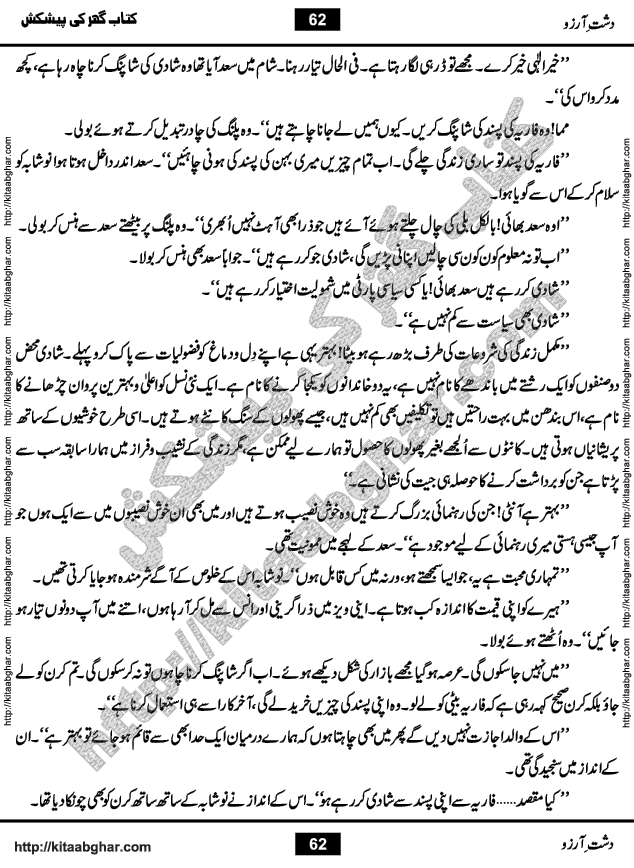 کتاب گھر کی پیشکش 62 دشتِ آرزو
’’خیر الٰہی خیر کرے۔ مجھے تو ڈر ہی لگا رہتا ہے۔ فی الحال تیار رہنا۔ شام میں سعد آیا تھا وہ شادی کی شاپنگ کرنا چاہ رہا ہے، کچھ
مدد کرو اس کی‘‘۔
مما! وہ فاریہ کی پسند کی شاپنگ کریں۔ کیوں ہمیں لے جانا چاہتے ہیں‘‘۔ وہ پلنگ کی چادر تبدیل کرتے ہوئے بولی۔
’’فاریہ کی پسند تو ساری زندگی چلے گی۔ اب تمام چیزیں میری بہن کی پسند کی ہونی چائیں‘‘۔ سعد اندر داخل ہوتا ہوا نوشابہ کو
سلام کر کے اس سے گویا ہوا۔
’’اوہ سعد بھائی! بالکل بلی کی چال چلتے ہوئے آئے ہیں جو ذرا بھی آہٹ نہیں اُبھری‘‘۔ وہ پلنگ پر بیٹھتے سعد سے ہنس کر بولی۔
’’اب تو نہ معلوم کون کون سی چالیں اپنانی پڑیں گی، شادی جو کر رہے ہیں‘‘۔ جواباً سعد بھی ہنس کر بولا۔
’’شادی کر رہے ہیں سعد بھائی! یا کسی سیاسی پارٹی میں شمولیت اختیار کر رہے ہیں‘‘۔
’’شادی بھی سیاست سے کم نہیں ہے‘‘۔
’’مکمل زندگی کی شروعات کی طرف بڑھ رہے ہو بیٹا! بہتر یہی ہے اپنے دِل و دماغ کو فضولیات سے پاک کر و پہلے۔ شادی محض
دو صنفوں کو ایک رشتے میں باندھے کا نام نہیں ہے، یہ دو خاندانوں کو یکجا کرنے کا نام ہے۔ ایک نئی نسل کو اعلیٰ و بہترین پروان چڑھانے کا
نام ہے، اس بندھن میں بہت راحتیں ہیں تو تکلیفیں بھی کم نہیں ہیں، جیسے پھولوں کے سنگ کانٹے ہوتے ہیں۔ اسی طرح خوشیوں کے ساتھ
پریشانیاں ہوتی ہیں۔ کانٹوں سے اُلجھے بغیر پھولوں کا حصول تو ہمارے لیے ممکن ہے، مگر زندگی کے نشیب و فراز میں ہمارا سابقہ سب سے
پڑتا ہے جن کو برداشت کرنے کا حوصلہ ہی جیت کی نشانی ہے۔‘‘
’’بہتر ہے آنٹی! جن کی رہنمائی بزرگ کرتے ہیں وہ خوش نصیب ہوتے ہیں اور میں بھی ان خوش نصیبوں میں سے ایک ہوں جو
آپ جیسی ہستی میری رہنمائی کے لیے موجود ہے‘‘۔ سعد کے لہجے میں ممونیت تھی۔
’’تمہاری محبت ہے یہ، جو ایسا سمجھتے ہو، ورنہ میں کس قابل ہوں‘‘۔ نوشابہ اس کے خلوص کے آگے شرمندہ ہو جایا کرتی تھیں۔
’’ہیرے کو اپنی قیمت کا اندازہ کب ہوتا ہے۔ اینی ویز میں ذرا گرینی اور انس سے مل کر آ رہا ہوں، اتنے میں آپ دونوں تیار ہو
جائیں‘‘۔ وہ اُٹھتے ہوئے بولا۔
’’میں نہیں جا سکوں گی۔ عرصہ ہو گیا مجھے بازار کی شکل دیکھے ہوئے۔ اب اگر شاپنگ کرنا چاہوں تو نہ کر سکوں گی۔ تم کرن کو لے
جاؤ بلکہ کرن صحیح کہہ رہی ہے کہ فاریہ بیٹی کو لے لو۔ وہ اپنی پسند کی چیزیں خرید لے گی، آخر کار اسے ہی استعمال کرنا ہے‘‘۔
’’اس کے والد اجازت نہیں دیں گے پھر میں بھی چاہتا ہوں کہ ہمارے درمیان ایک حد ابھی سے قائم ہو جائے تو بہتر ہے‘‘۔ ان
کے انداز میں سنجیدگی تھی۔
’’کیا مقصد...... فاریہ سے اپنی پسند سے شادی کر رہے ہو‘‘۔ اس کے انداز نے نوشابہ کے ساتھ ساتھ کرن کو بھی چونکا دیا تھا۔
http://kitaabghar.com 62 دشتِ آرزو
http://kitaabghar.com
کتاب گھر کی پیشکش
http://kitaabghar.com